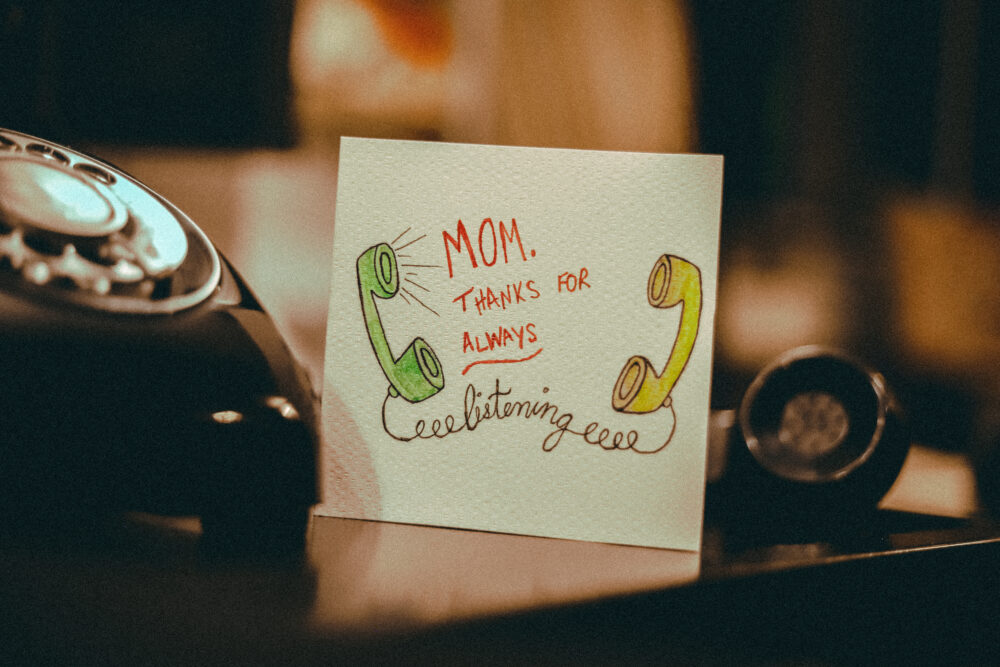 MOM.
THANKS FOR
ALWAYS
listening